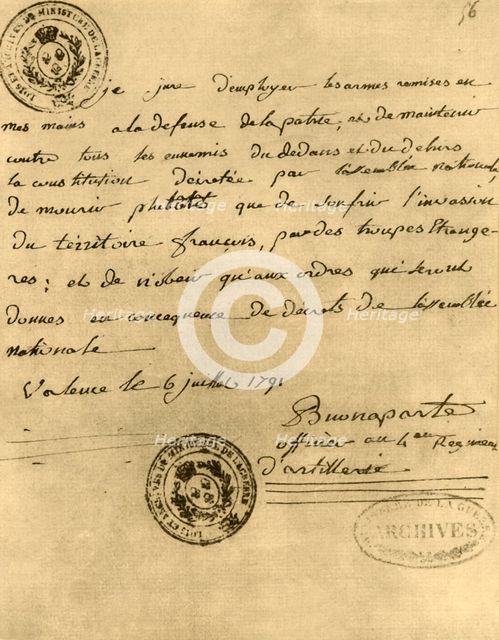 56
LOIS ET ARCHIVES DU MINISTERE DE LA GUERRE
je jure d'employer les armes remises en
mes mains a la defense de la patrie, et de maintenir
contre tous les ennemis du dedans et du dehors
la constitution décretée par l'assemblée nationale
de mourir plutôt que de souffrir l'invasion
du térritoire françois, par des troupes étrange-
res; et de n'obeir qu'aux ordres qui seront
donnes en concequence de décrets de l'assemblée
nationale
Valence le 6 juillet 1791
Buonaparte
officier au 4eme Regiment
d'artillerie
LOIS ET ARCHIVES DU MINISTERE DE LA GUERRE
DE LA GUERRE
ARCHIVES
Heritage
Heritage
Heritage
Heritage
Heritage
Heritage